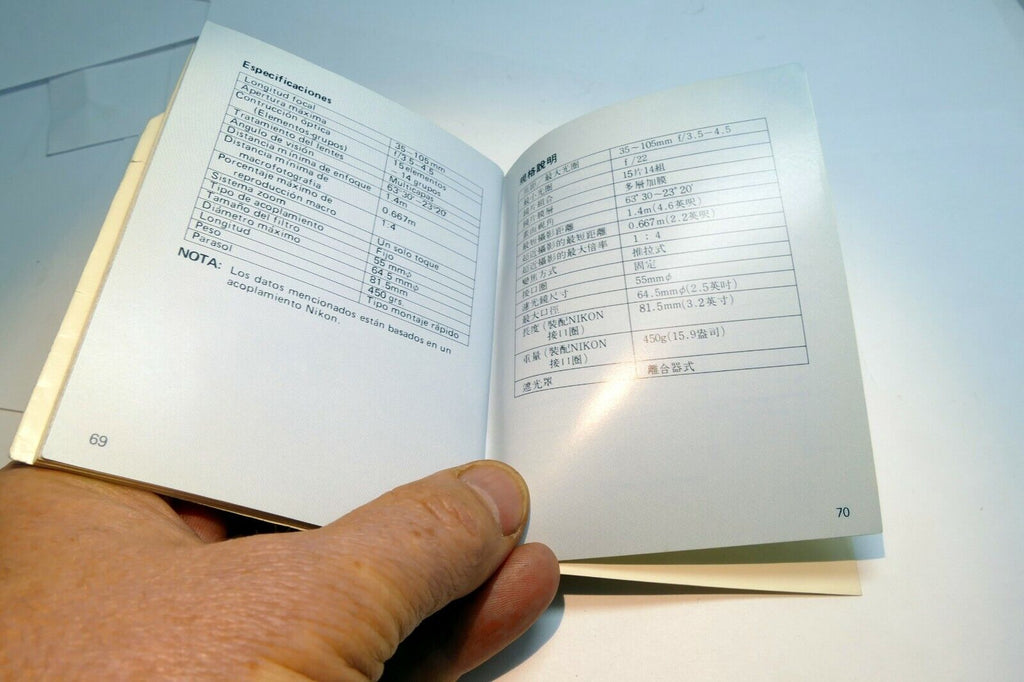 Especificaciones
Longitud focal 35~105mm
Apertura máxima f/3.5-4.5
Contrucción óptica 15elementos
(Elementos-grupos) 14 grupos
Tratamiento del lentes Multicapas
Angulo de visión 63°30'-23°20'
Distancia mínima de enfoque 1.4m
Distancia mínima de
macrofotografia 0.667m
Porcentaje máximo de
reproducción macro 1:4
Sistema zoom Un solo toque
Tipo de acoplamiento Fijo
Tamaño del filtro 55 mmφ
Diámetro máximo 64.5 mmφ
Longitud 81.5mm
Peso 450 grs.
Parasol Tipo montaje rápido
NOTA: Los datos mencionados están basados en un
acoplamiento Nikon.
69
規格說明
最大光圈 35~105mm f/3.5-4.5
最小光圈 f/22
15片14組
多層加膜
63°30'-23°20'
最短攝影距離 1.4m(4.6英呎)
攝影的最短距離 0.667m(2.2英呎)
攝影的最大倍率 1:4
變焦方式 推拉式
接口圈 固定
濾光鏡尺寸 55mmφ
最大口徑 64.5mmφ(2.5英吋)
長度(裝配NIKON 81.5mm(3.2英寸)
接口圈)
重量(裝配NIKON 450g(15.9盎司)
接口圈)
遮光罩 離合器式
70